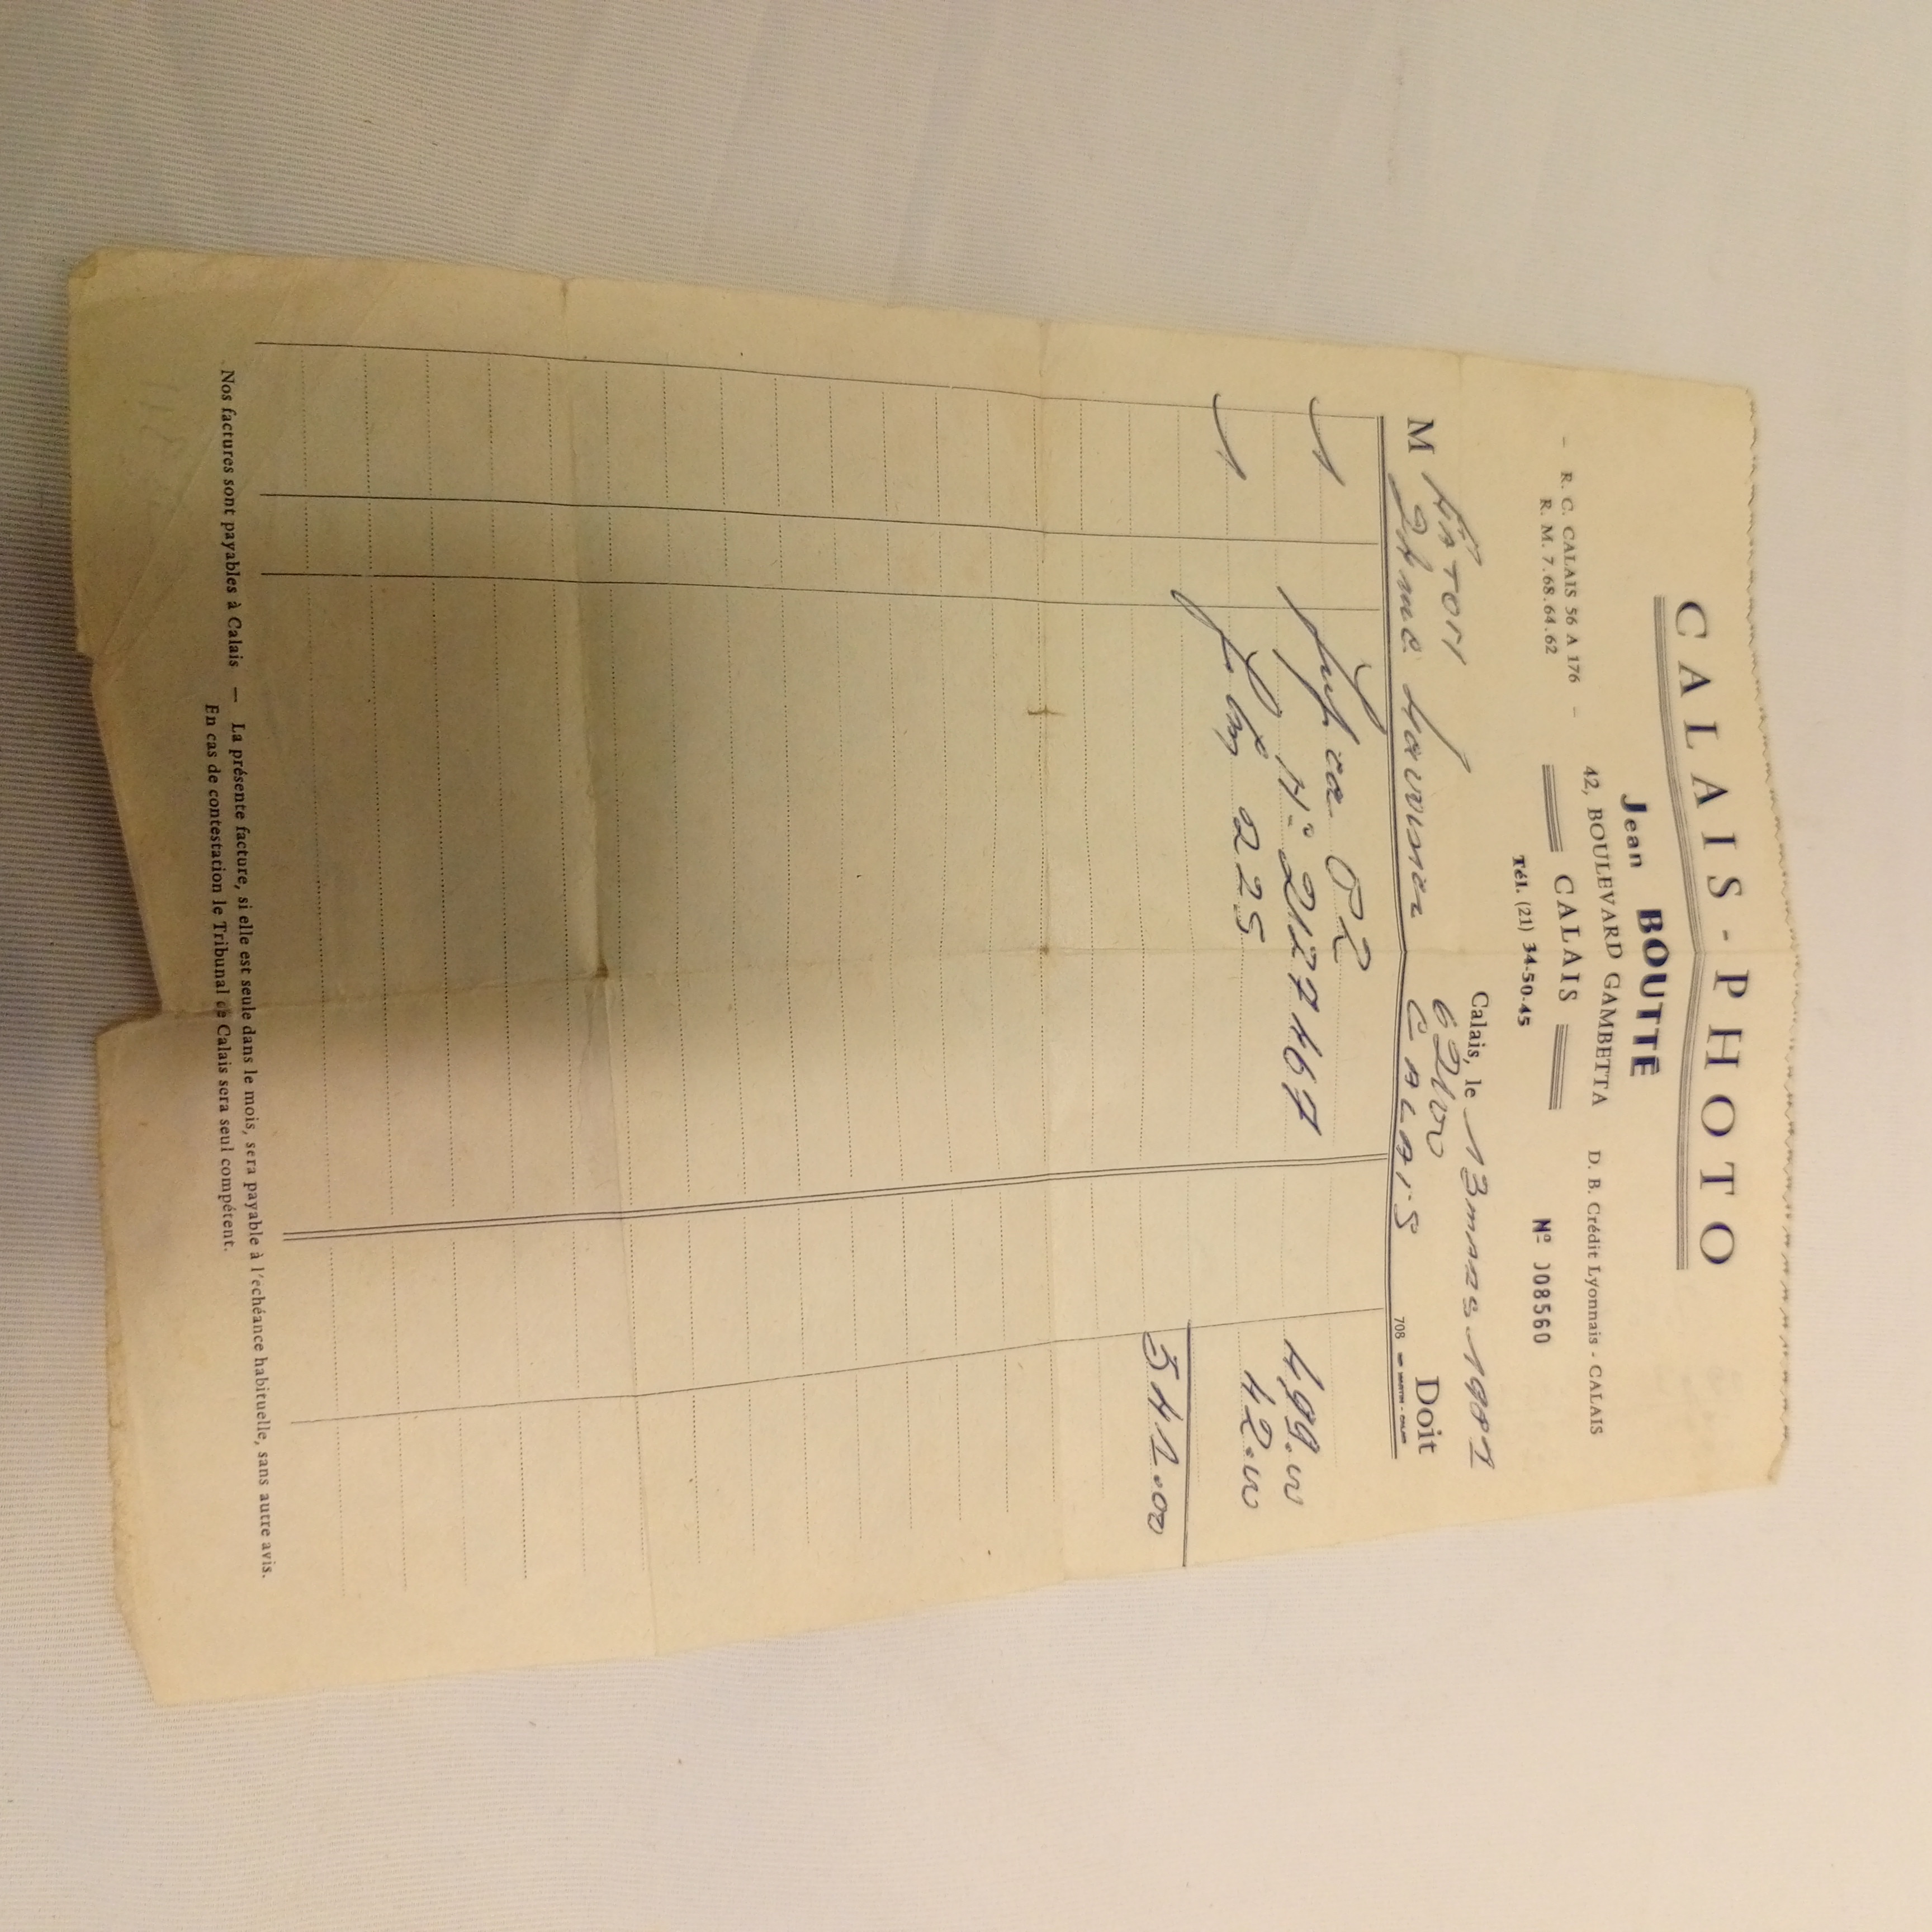 CALAIS-PHOTO
Jean BOUTTE
42, BOULEVARD GAMBETTA D. B. Crédit Lyonnais - CALAIS
- R. C. CALAIS 56 A 176 - CALAIS
R. M. 7.68.64.62
Tél. (21) 34-50-45 Nº 008560
Calais, le 13 mars 1981
62100
M CALAIS Doit
708
1 N° 2127467 499.00
1 film 225 42.00
541.00
Nos factures sont payables à Calais — La présente facture, si elle est seule dans le mois, sera payable à l'echéance habituelle, sans autre avis.
En cas de contestation le Tribunal de Calais sera seul compétent.